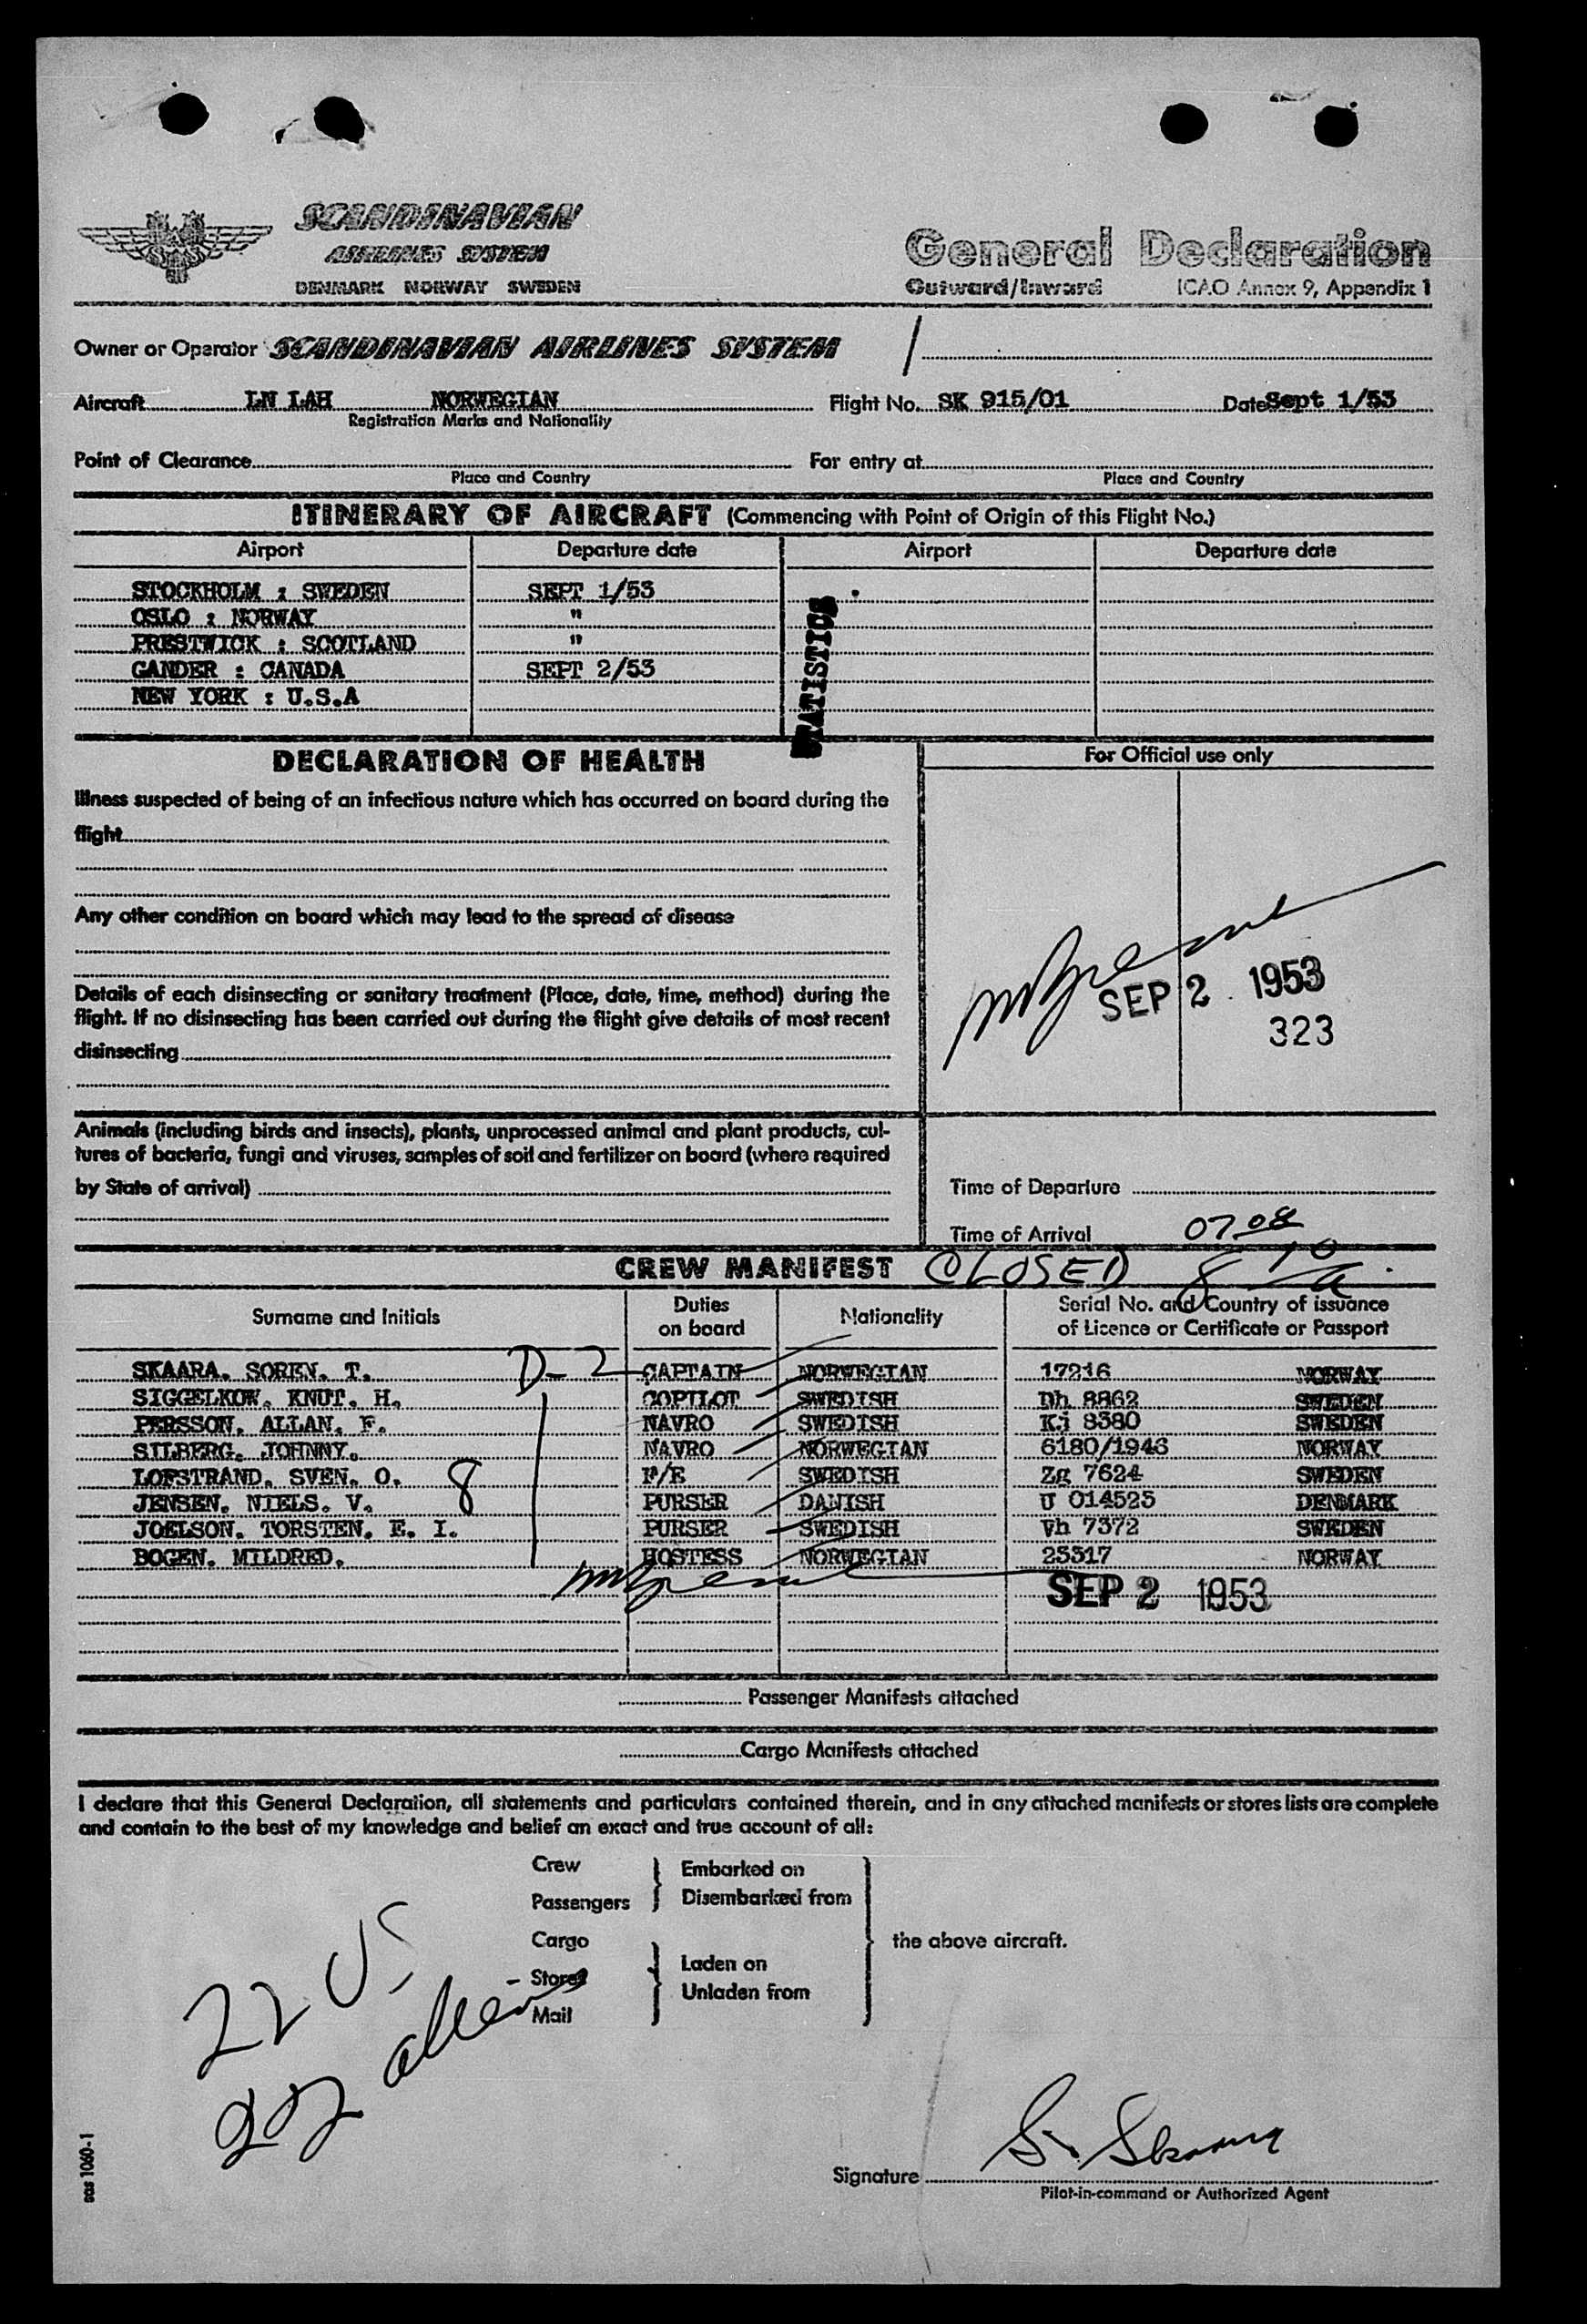 SCANDINAVIAN
AIRLINES SYSTEM
DENMARK NORWAY SWEDEN
General Declaration
Outward/Inward ICAO Annex 9, Appendix 1
Owner or Operator SCANDINAVIAN AIRLINES SYSTEM
Aircraft LN LAH NORWEGIAN Flight No. SK 915/01 Date Sept 1/53
Registration Marks and Nationality
Point of Clearance For entry at
Place and Country Place and Country
ITINERARY OF AIRCRAFT (Commencing with Point of Origin of this Flight No.)
Airport Departure date Airport Departure date
STOCKHOLM : SWEDEN SEPT 1/53
OSLO : NORWAY "
PRESTWICK : SCOTLAND "
GANDER : CANADA SEPT 2/53
NEW YORK : U.S.A
STATISTICS
DECLARATION OF HEALTH
Illness suspected of being of an infectious nature which has occurred on board during the
flight
Any other condition on board which may lead to the spread of disease
Details of each disinsecting or sanitary treatment (Place, date, time, method) during the
flight. If no disinsecting has been carried out during the flight give details of most recent
disinsecting
Animals (including birds and insects), plants, unprocessed animal and plant products, cul-
tures of bacteria, fungi and viruses, samples of soil and fertilizer on board (where required
by State of arrival)
For Official use only
SEP 2 1953
323
Time of Departure
Time of Arrival 0708
CREW MANIFEST CLOSED
Surname and Initials Duties on board Nationality Serial No. and Country of issuance
of Licence or Certificate or Passport
SKAARA. SOREN. T. D-2 CAPTAIN NORWEGIAN 17216 NORWAY
SIGGELKOW. KNUT. H. COPILOT SWEDISH Dh 8862 SWEDEN
PERSSON. ALLAN. F. NAVRO SWEDISH Kj 8380 SWEDEN
SILBERG. JOHNNY. NAVRO NORWEGIAN 6180/1946 NORWAY
LOFSTRAND. SVEN. O. F/E SWEDISH Zg 7624 SWEDEN
JENSEN. NIELS. V. 8 PURSER DANISH U 014525 DENMARK
JOELSON. TORSTEN. E. I. PURSER SWEDISH Vh 7372 SWEDEN
BOGEN. MILDRED. HOSTESS NORWEGIAN 25317 NORWAY
SEP 2 1953
Passenger Manifests attached
Cargo Manifests attached
I declare that this General Declaration, all statements and particulars contained therein, and in any attached manifests or stores lists are complete
and contain to the best of my knowledge and belief an exact and true account of all:
Crew Embarked on
Passengers Disembarked from
Cargo the above aircraft.
Stores Laden on
Mail Unladen from
22 US
aliens
S. Skaara
Signature
Pilot-in-command or Authorized Agent
sas 1060-1